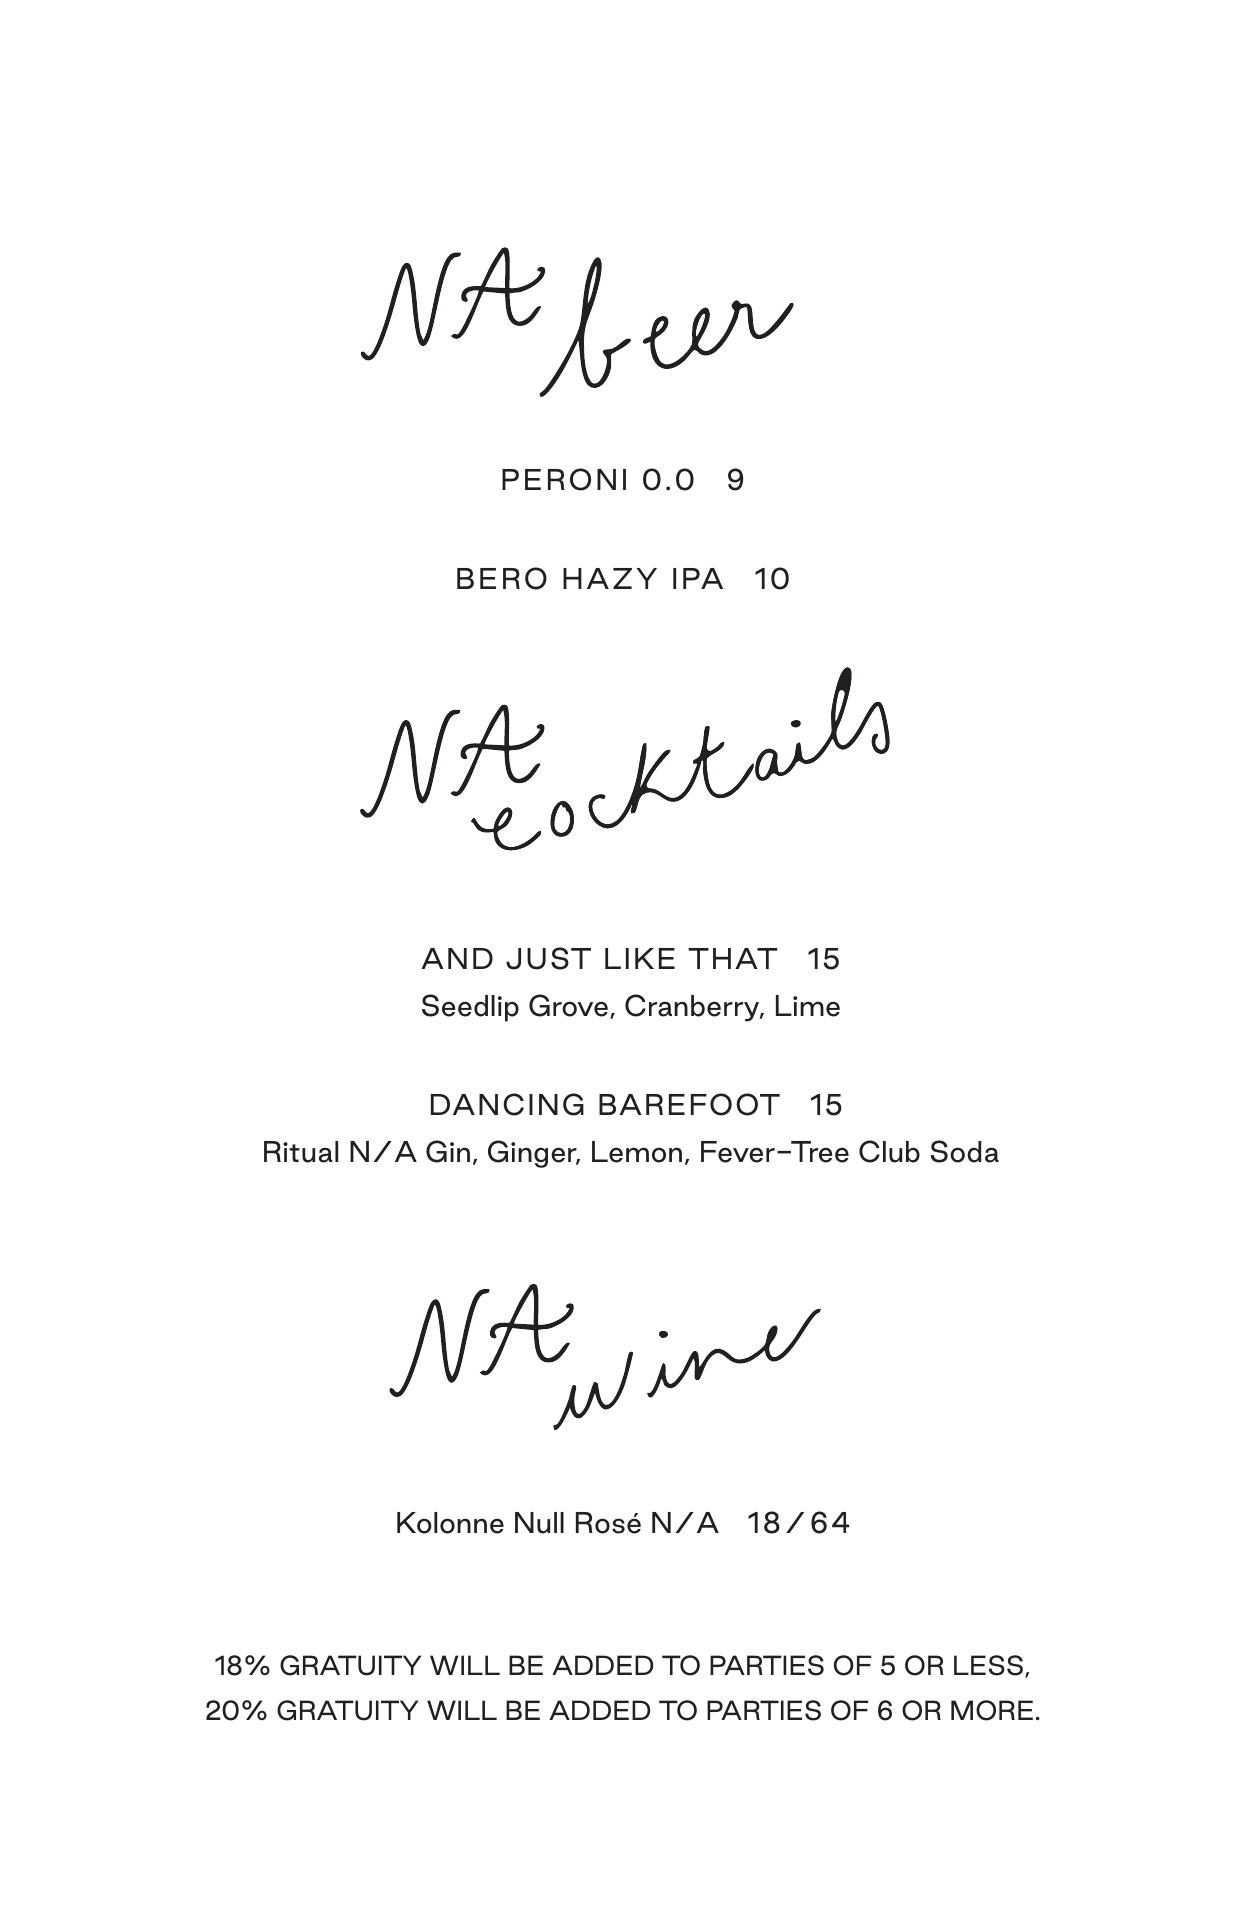 NA beer
PERONI 0.0 9
BERO HAZY IPA 10
NA
cocktails
AND JUST LIKE THAT 15
Seedlip Grove, Cranberry, Lime
DANCING BAREFOOT 15
Ritual N/A Gin, Ginger, Lemon, Fever-Tree Club Soda
NA
wine
Kolonne Null Rosé N/A 18/64
18% GRATUITY WILL BE ADDED TO PARTIES OF 5 OR LESS,
20% GRATUITY WILL BE ADDED TO PARTIES OF 6 OR MORE.